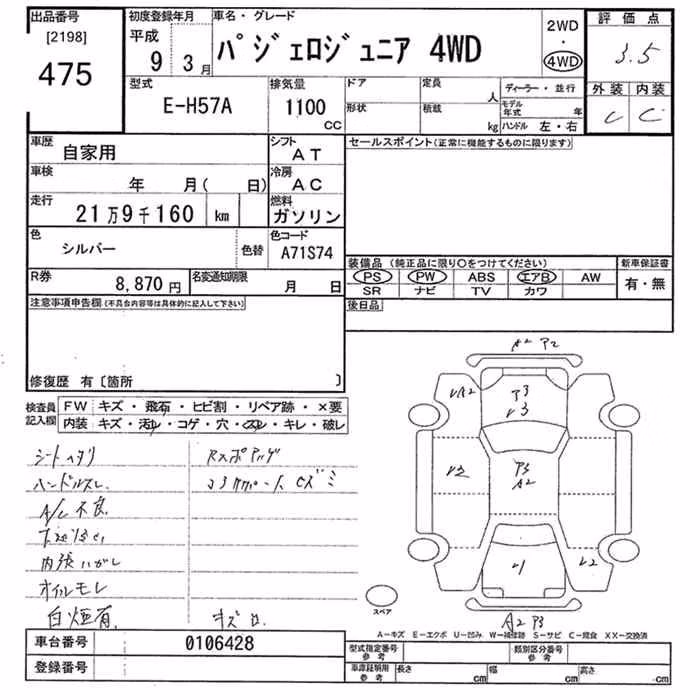 出品番号
[2198]
475
初度登録年月
平成
9 3月
車名・グレード
パジェロジュニア 4WD
2WD
・
4WD
評価点
3.5
外装 内装
C C
型式
E-H57A
排気量
1100
CC
ドア
形状
定員
人
積載
kg
ディーラー・並行
モデル年式 年
ハンドル 左・右
車歴
自家用
シフト
AT
車検
年 月( 日)
冷房
AC
走行
21万9千160 km
燃料
ガソリン
色
シルバー
色替
色コード
A71S74
R券
8,870円
名変通知期限
月 日
セールスポイント(正常に機能するものに限ります)
装備品(純正品に限り○をつけてください)
PS PW ABS エアB AW
SR ナビ TV カワ
新車保証書
有・無
後日品
注意事項申告欄(不具合内容等は具体的に記入して下さい)
修復歴 有〔箇所 〕
検査員
記入欄
FW キズ・飛石・ヒビ割・リペア跡・×要
内装 キズ・汚れ・コゲ・穴・スレ・キレ・破レ
シートヘタリ
ハンドルスレ
A/C不良
内張ハガレ
オイルモレ
白煙有
キズ
A2 P2
A2
P3
P3
A2
スペア
A2 P3
A－キズ E－エクボ U－凹み W－補修跡 S－サビ C－腐食 XX－交換済
車台番号 0106428
登録番号
型式指定番号
参考
類別区分番号
参考
車庫証明用
参考
長さ cm 幅 cm 高さ cm